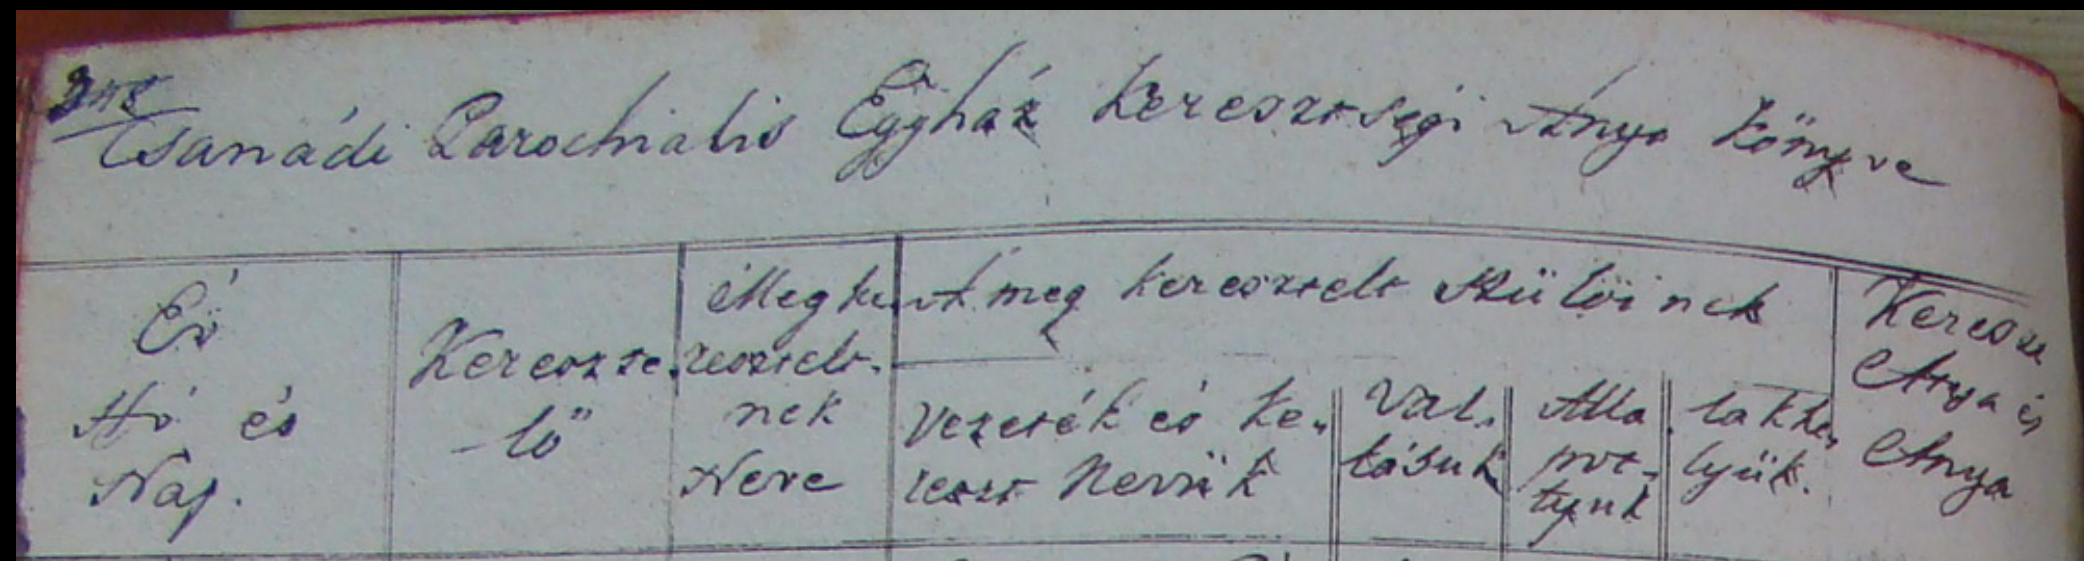 Csanádi Parochialis Egyház Keresztségi Anya Könyve
Év
Hó és
Nap.
Keresze-
-lő
Megke-
resztelt-
nek
Neve
A meg keresztelt szülőinek
Vezeték és ke-
reszt Nevük
Val-
lásuk
Álla
pot-
tyuk
lakhe-
lyük.
Kereszt
Atya és
Anya